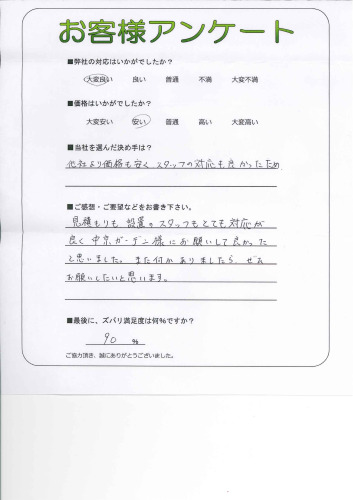 お客様アンケート
■弊社の対応はいかがでしたか？
大変良い 良い 普通 不満 大変不満
■価格はいかがでしたか？
大変安い 安い 普通 高い 大変高い
■当社を選んだ決め手は？
他社より価格も安く スタッフの対応も良かったため
■ご感想・ご要望などをお書き下さい。
見積もりも 設置のスタッフもとても対応が
良く 中京ガーデン様にお願いして良かった
と思いました。また何かありましたら、ぜひ
お願いしたいと思います。
■最後に、ズバリ満足度は何％ですか？
90 ％
ご協力頂き、誠にありがとうございました。